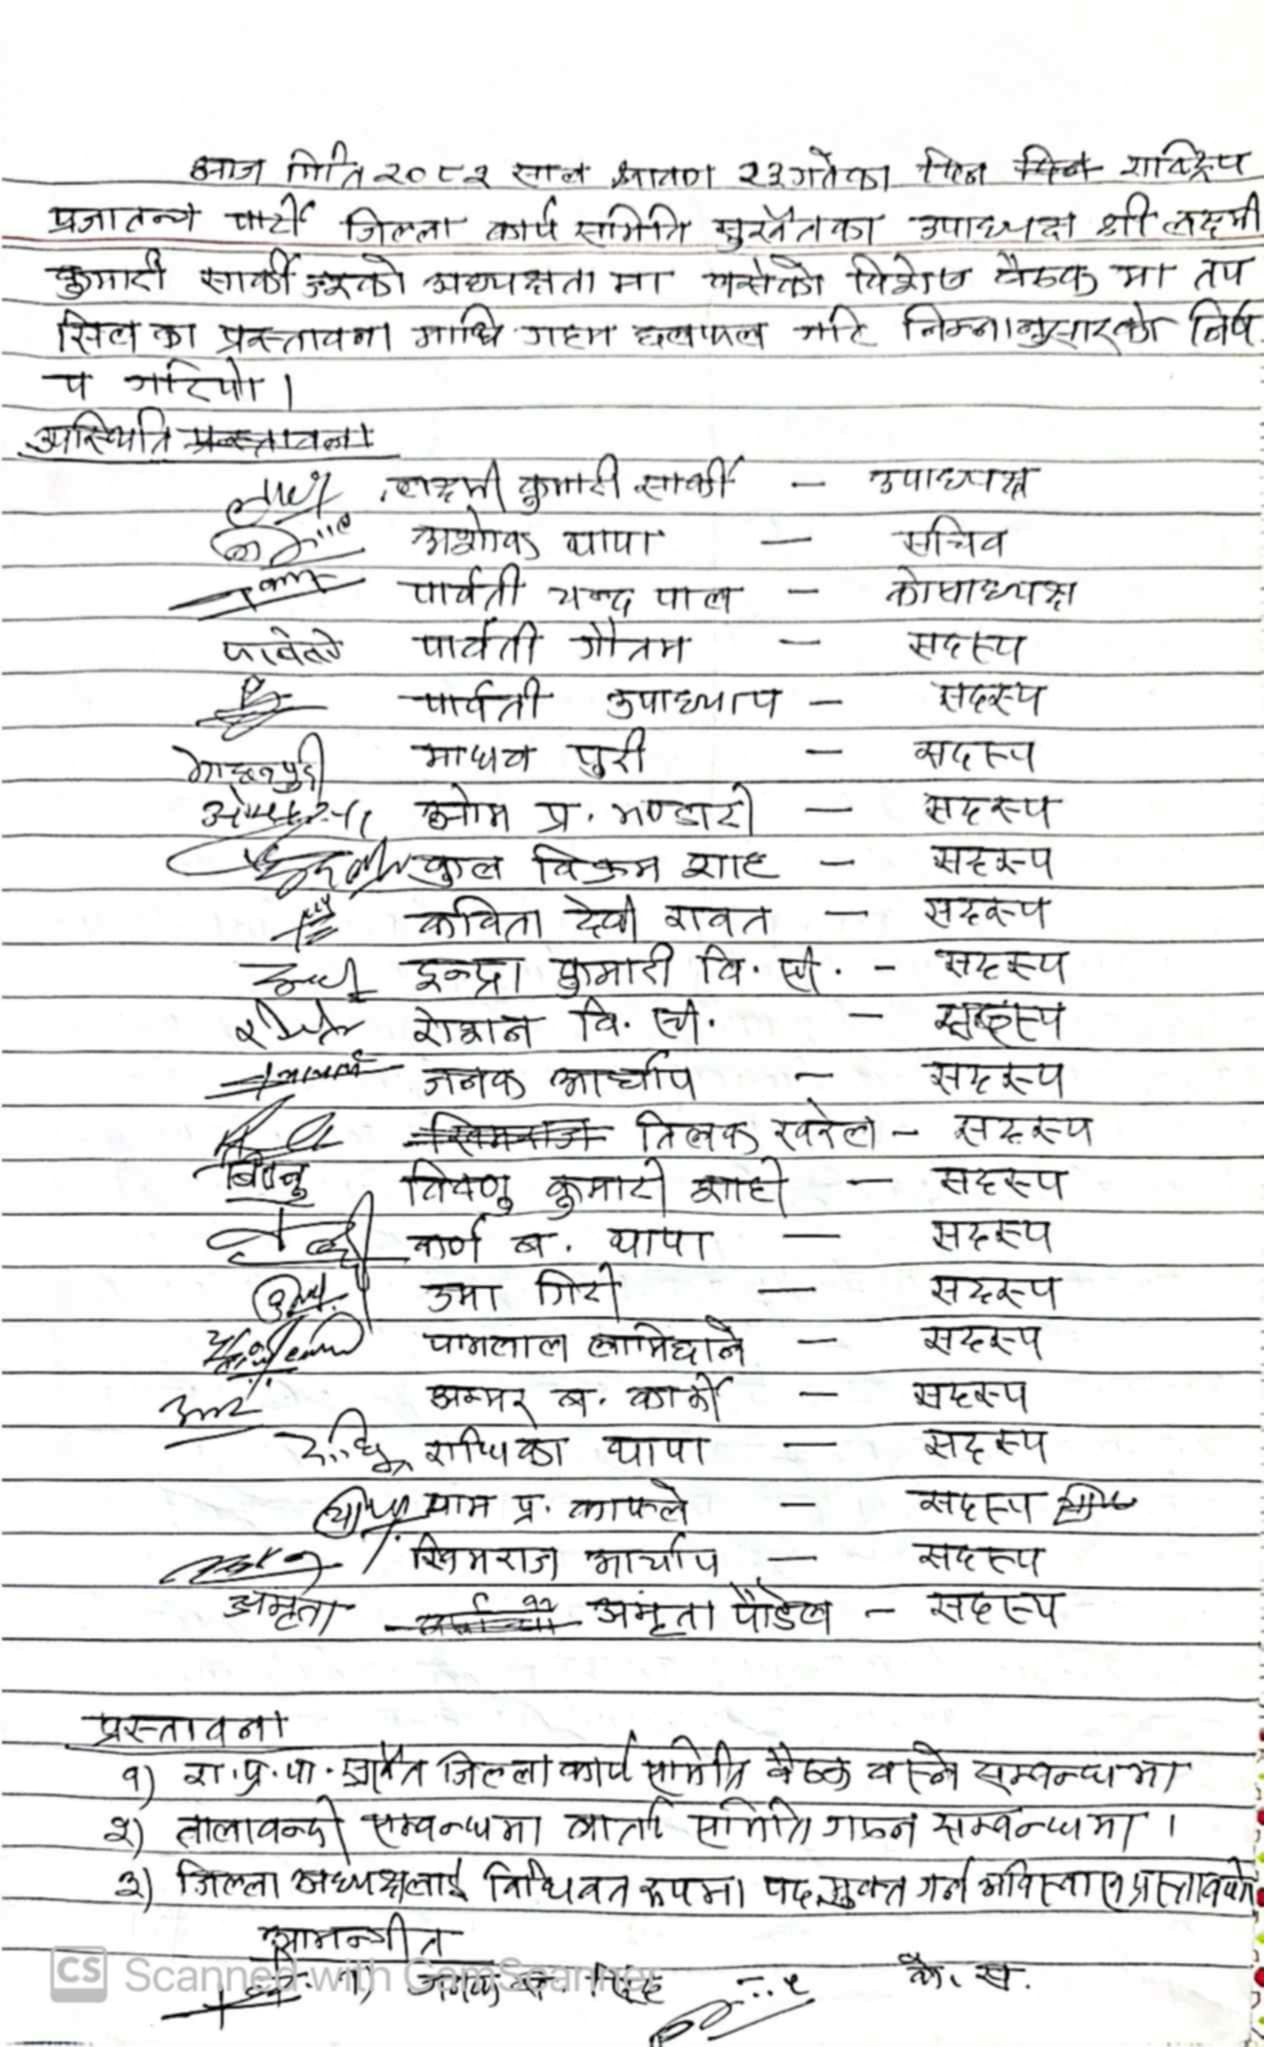 आज मिति २०८२ साल श्रावण २३ गतेका दिन राष्ट्रिय
प्रजातन्त्र पार्टी जिल्ला कार्य समिति सुर्खेतका उपाध्यक्ष श्री लक्ष्मी
कुमारी सार्की ज्यूको अध्यक्षता मा बसेको विशेष बैठक मा तप
सिल का प्रस्तावना माथि गहन छलफल गरि निम्नानुसारको निर्ण
य गरियो।
उपस्थिति प्रस्तावना
लक्ष्मी कुमारी सार्की – उपाध्यक्ष
अशोक थापा – सचिव
पार्वती चन्द पाल – कोषाध्यक्ष
पार्वती गौतम – सदस्य
पार्वती उपाध्याय – सदस्य
माधव पुरी – सदस्य
ओम प्र. भण्डारी – सदस्य
कुल विक्रम शाह – सदस्य
कविता देवी रावत – सदस्य
इन्द्रा कुमारी वि. सी. – सदस्य
रोशन वि. सी. – सदस्य
जनक आर्चाय – सदस्य
खिमराज तिलक खरेल – सदस्य
बिष्नु विष्णु कुमारी शाही – सदस्य
कर्ण ब. थापा – सदस्य
उमा गिरी – सदस्य
यामलाल लामिछाने – सदस्य
अम्मर ब. कार्की – सदस्य
राधिका थापा – सदस्य
याम प्र. काफ्ले – सदस्य
खिमराज आर्चाय – सदस्य
अमृता अमृता पौडेल – सदस्य
प्रस्तावना
१) रा.प्र.पा. सुर्खेत जिल्ला कार्य समिति बैठक बस्ने सम्बन्धमा
२) तालाबन्दी सम्बन्धमा वार्ता समिति गठन सम्बन्धमा ।
३) जिल्ला अध्यक्षलाई विधिवत रुपमा पद मुक्त गर्न अविस्वास प्रस्तावको
आमन्त्रीत
१) के. स.
CS Scanned with CamScanner